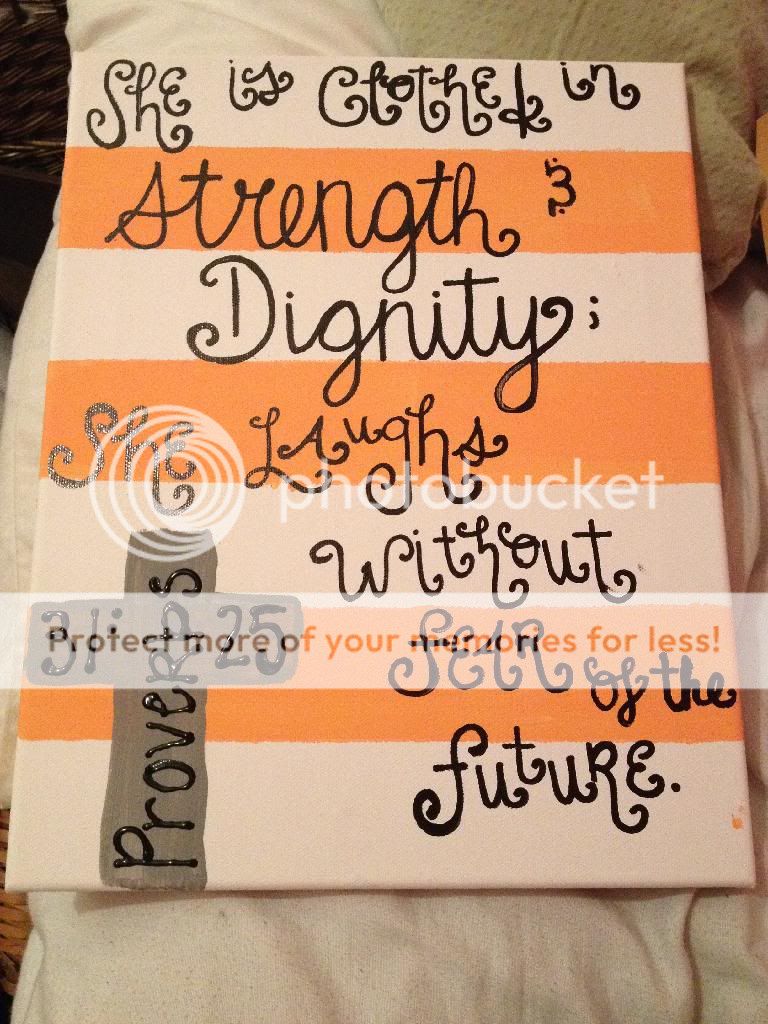 She is Clothed in
Strength &
Dignity;
She Laughs
photobucket
Without
Proverbs
31:25
Protect more of your memories for less!
fear of the
future.